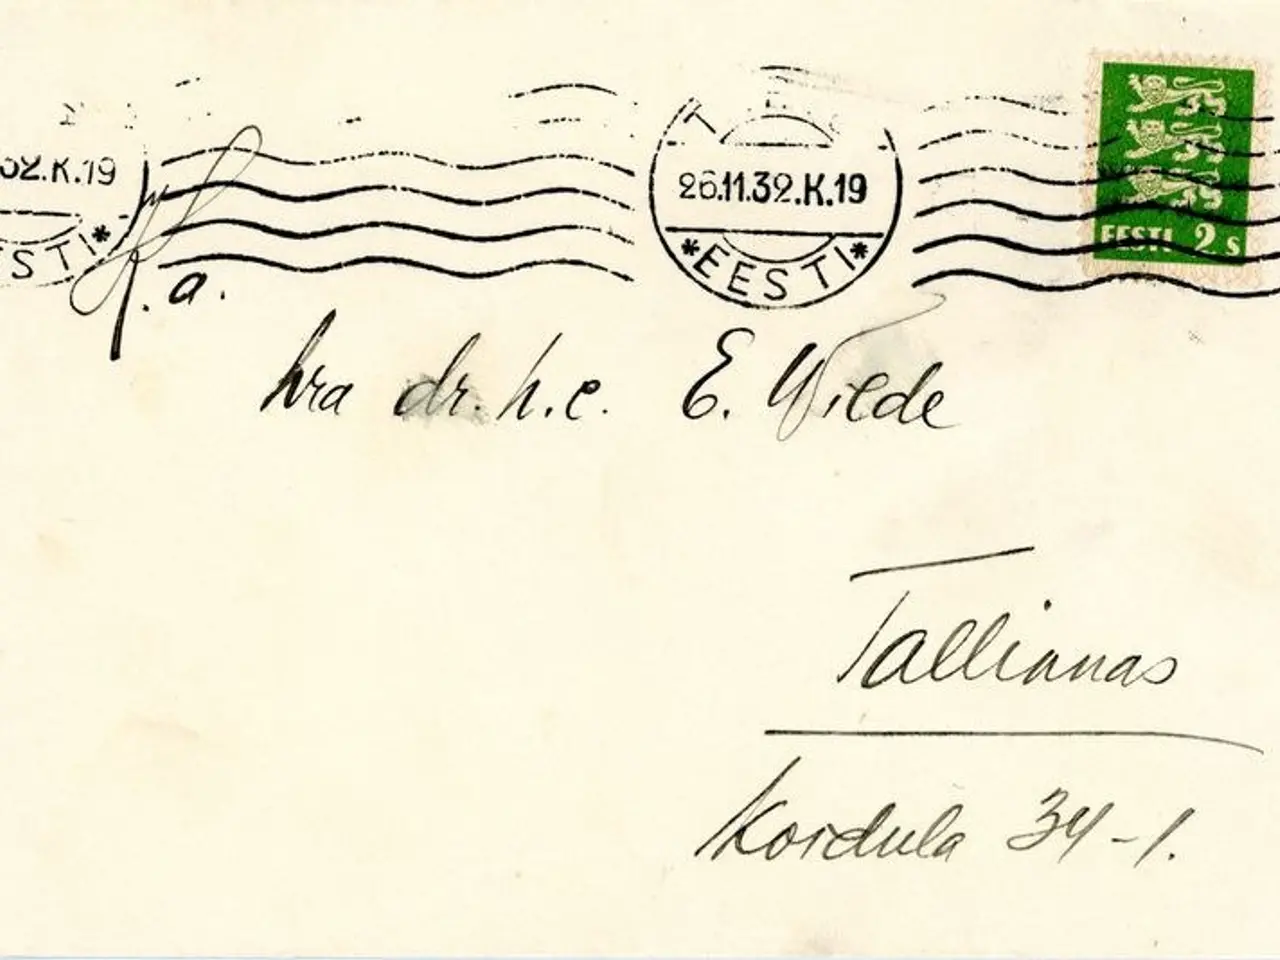 32.K.19
26.11.32.K.19
EESTI
EESTI 2 s
K. a.
hra dr. h. c. E. Wilde
Tallinnas
Koidula 34-1.